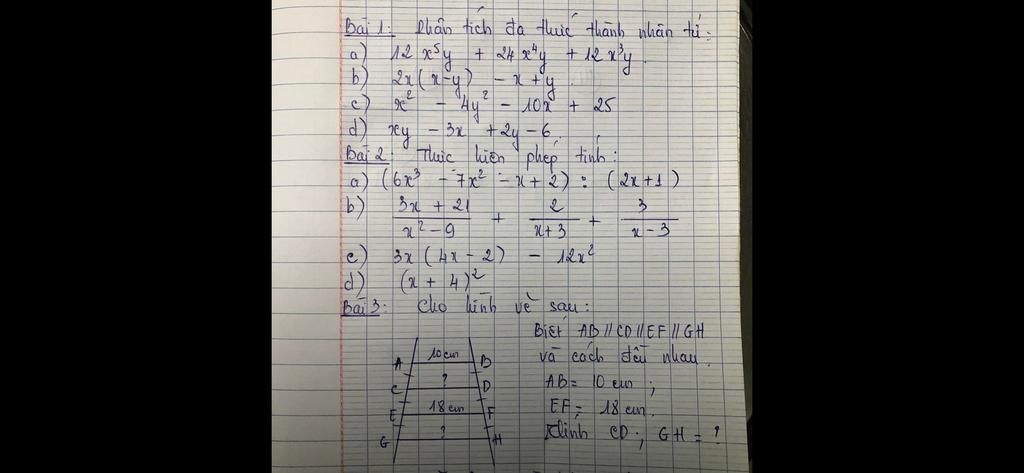 Bài 1: Phân tích đa thức thành nhân tử:
a) 12x⁵y + 24x⁴y + 12x³y.
b) 2x(x-y) - x + y.
c) x² - 4y² - 10x + 25
d) xy - 3x + 2y - 6.
Bài 2: Thực hiện phép tính:
a) (6x³ - 7x² - x + 2) : (2x+1)
b) (3x + 21)/(x² - 9) + 2/(x+3) + 3/(x-3)
c) 3x(4x - 2) - 12x²
d) (x + 4)²
Bài 3: Cho hình vẽ sau:
Biết AB // CD // EF // GH
và cách đều nhau.
AB = 10 cm;
EF = 18 cm.
Tính CD; GH = ?
A 10cm B
C ? D
E 18cm F
G ? H